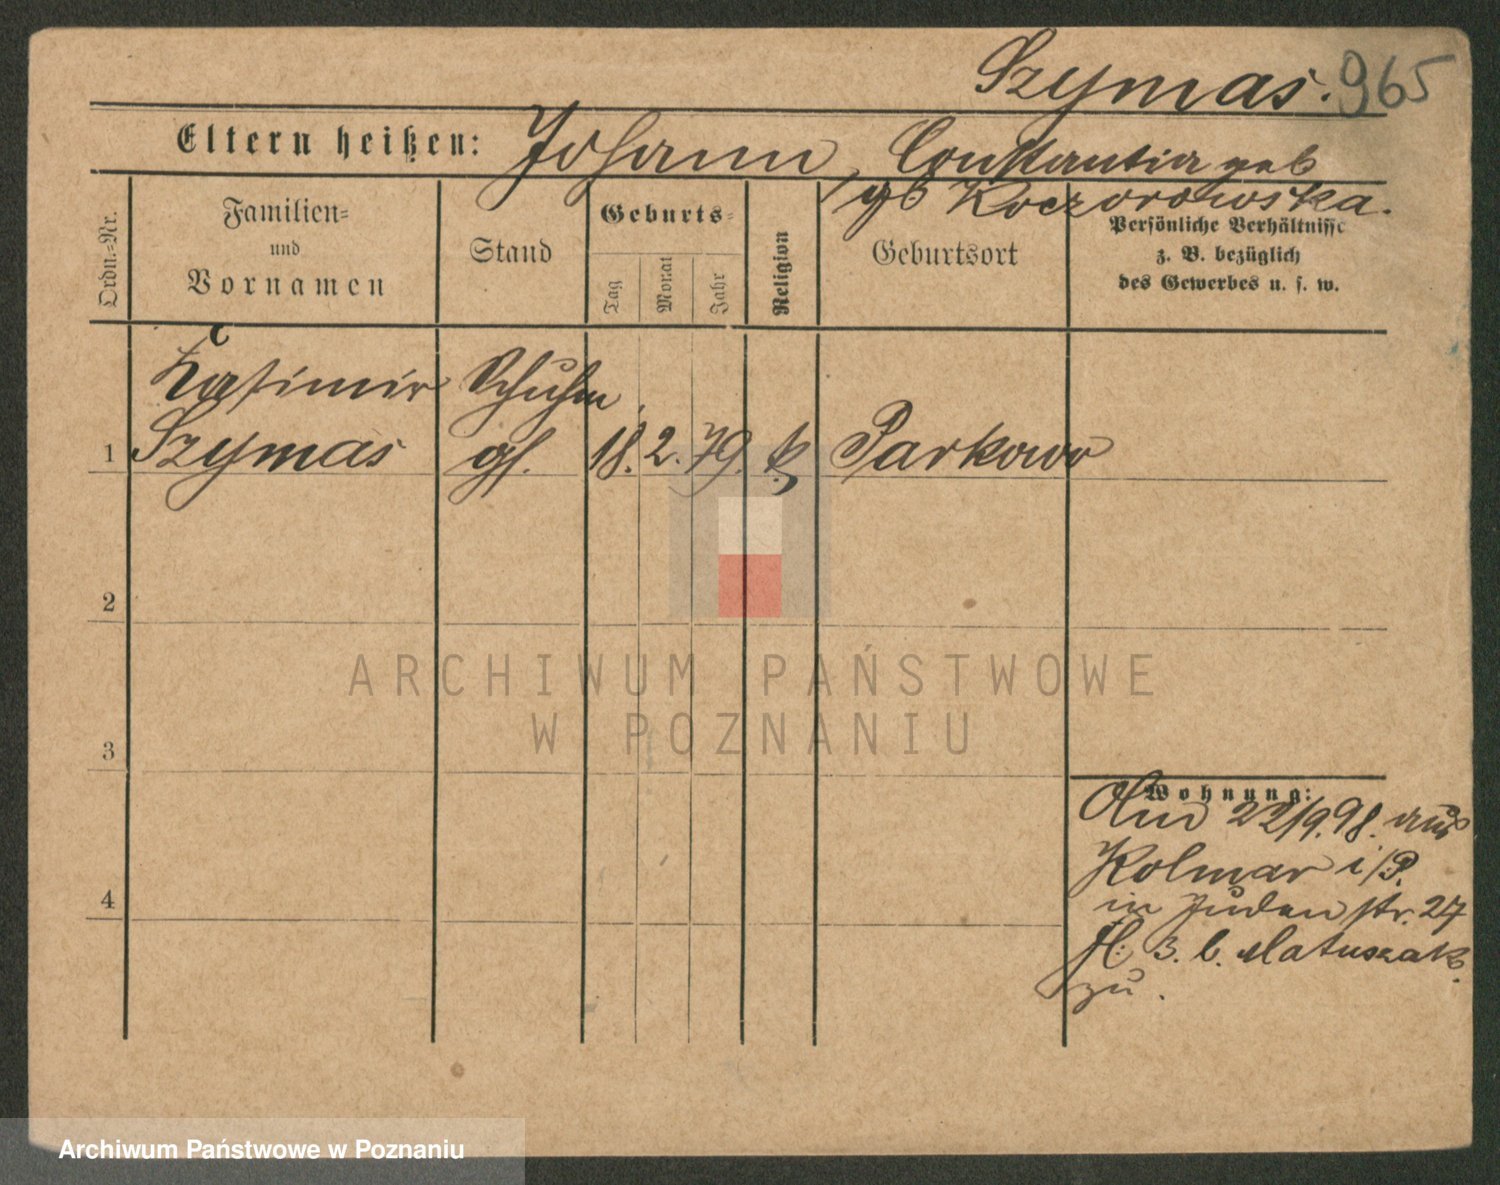 Szymas. 965
Eltern heißen: Johann, Constantia geb
gb Koczorowska.
Ordn.-Nr.
Familien-
und
Vornamen
Stand
Geburts-
Tag
Monat
Jahr
Religion
Geburtsort
Persönliche Verhältnisse
z. B. bezüglich
des Gewerbes u. s. w.
Kasimir Schuhm
1 Szymas gs. 18. 2. 79. k Parkowo
2
3
4
Wohnung:
22/9. 98. aus
Kolmar i/P.
in Judenstr. 27
3. b. Matuszak
zu.
ARCHIWUM PAŃSTWOWE
W POZNANIU
Archiwum Państwowe w Poznaniu